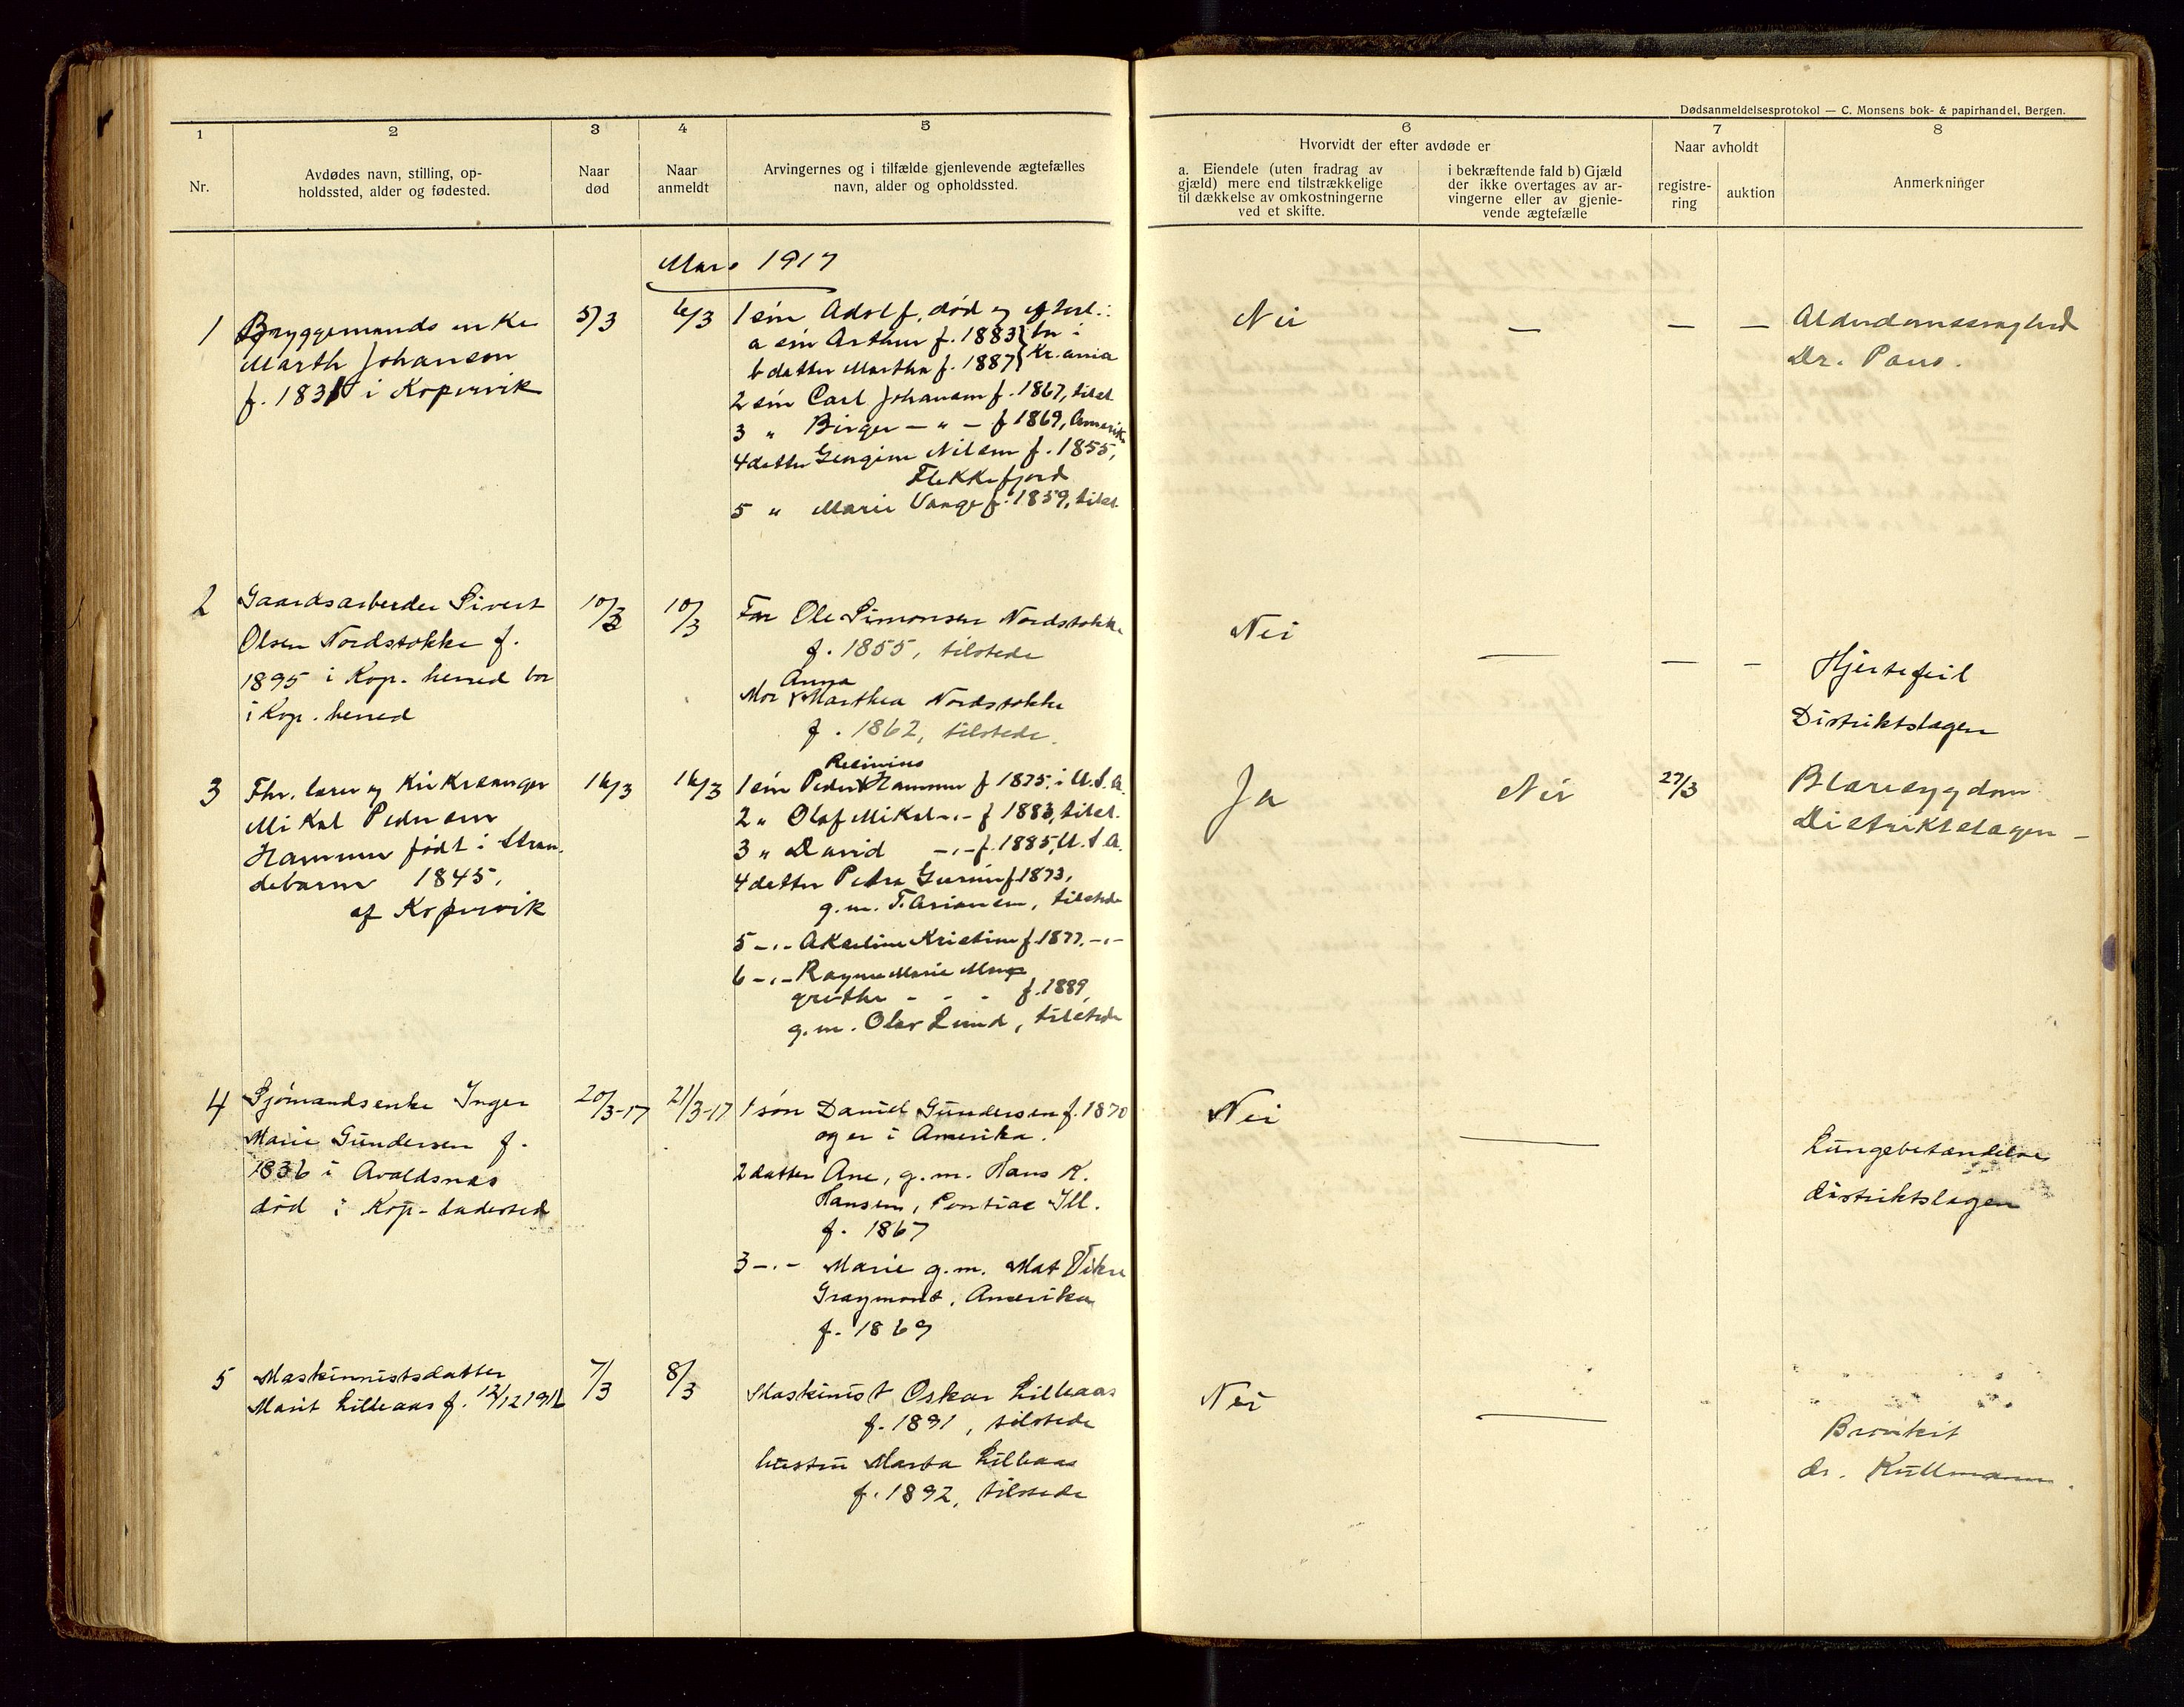 Dødsanmeldelsesprotokol — C. Monsens bok- & papirhandel, Bergen.
1
2
3
4
5
6
7
8
Nr.
Avdødes navn, stilling, op-
holdssted, alder og fødested.
Naar
død
Naar
anmeldt
Arvingernes og i tilfælde gjenlevende ægtefælles
navn, alder og opholdssted.
Hvorvidt der efter avdøde er
a. Eiendele (uten fradrag av
gjæld) mere end tilstrækkelige
til dækkelse av omkostningerne
ved et skifte.
i bekræftende fald b) Gjæld
der ikke overtages av ar-
vingerne eller av gjenle-
vende ægtefælle
Naar avholdt
registre-
ring
auktion
Anmerkninger
Mars 1917
1
Bryggemands enke
Marth Johansen
f. 1831 i Kopervik
5/3
6/3
1 søn Adolf, død og efterl.:
a søn Arthur f. 1883 } bor i
b datter Martha f. 1887 } Kr.ania
2 søn Carl Johansen f. 1867, tilst.
3 " Birger — " — f 1869, Amerika
4 datter Gurine Nilsen f. 1855,
Flekkefjord
5 " Marie Vange f. 1859, tilst.
Nei
—
—
—
Alderdomssvaghed
Dr. Paus.
2
Gaardsarbeider Sivert
Olsen Nordstokke f.
1895 i Kop. herred bor
i Kop. herred
10/3
10/3
Far Ole Simonsen Nordstokke
f. 1855, tilstede
Anna
Mor Marthea Nordstokke
f. 1862, tilstede.
Nei
—
—
—
Hjertefeil
Distriktslægen
3
Fhr. lærer og Kirkesanger
Mikal Pedersen
Hammer født i Stran-
debarm 1845,
af Kopervik
16/3
16/3
1 søn Peder Hammer f 1875, i U.S.A.
2 " Olaf Mikal -"- f 1883, tilst.
3 " David -"- f. 1885, U.S.A.
4 datter Petra Gurine f 1873,
g.m. T. Ariansen, tilstede
5 -"- Akseline Kristine f. 1877. -"-
6 -"- Ragna Marie Mar
grethe - - - f. 1889,
g.m. Olav Lund, tilstede
Ja
Nei
27/3
Blæresygdom
Distriktslægen —
4
Sjømandsenke Inger
Marie Gundersen f.
1836 i Avaldsnæs
død i Kop- ladested
20/3-17
21/3-17
1 søn Daniel Gundersen f. 1870
og er i Amerika.
2 datter Ane, g.m. Hans K.
Hansen, Pontiac Ill.
f. 1867
3 -"- Marie g.m. Mat Vikse
Graymont, Amerika
f. 1869
Nei
—
Lungebetændelse
distriktslægen
5
Maskinnistsdatter
Marit Lilleaas f. 12/12 1916
7/3
8/3
Maskinist Oskar Lilleaas
f. 1891, tilstede
hustru Marta Lilleaas
f. 1892, tilstede
Nei
—
Bronkit
dr. Kullmann.